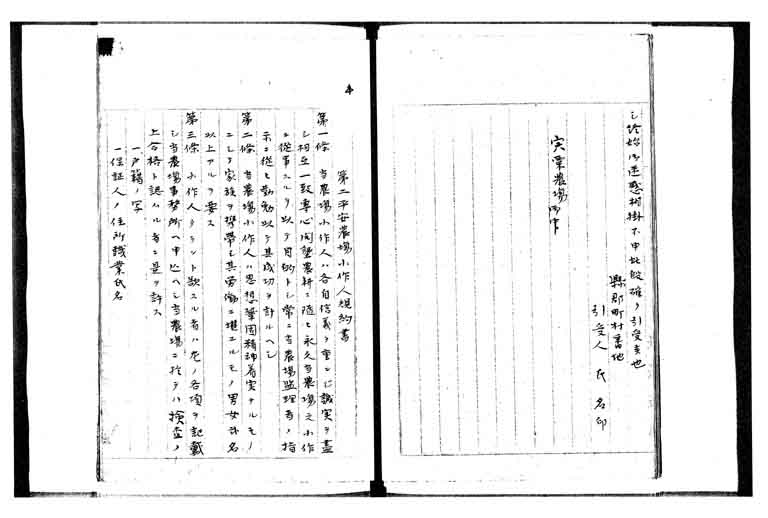 シ終始御迷惑相掛不申此段確ク引受支也
縣郡町村番地
引受人 氏名印
実業農場御中
第二平安農場小作人規約書
第一條 当農場小作人ハ各自信義ヲ重シ誠実ヲ盡
シ相互一致専心開墾農耕ニ随ヒ永久当農場之小作
ニ従事スルヲ以テ目的トシ常ニ当農場監理者ノ指
示ニ従ヒ勤勉以テ其成功ヲ計ルヘシ
第二條 当農場小作人ハ思想鞏固精神着実ナルモノ
ニシテ家族ヲ携帯シ其労働ニ堪エルモノ男女弐名
以上アルヲ要ス
第三條 小作人タラント欲スル者ハ左ノ各項ヲ記載
シ当農場事務所ヘ申込ヘシ当農場ニ於テハ検査ノ
上合格ト認ムル者ニ是ヲ許ス
一戸籍ノ写
一保証人ノ住所職業氏名